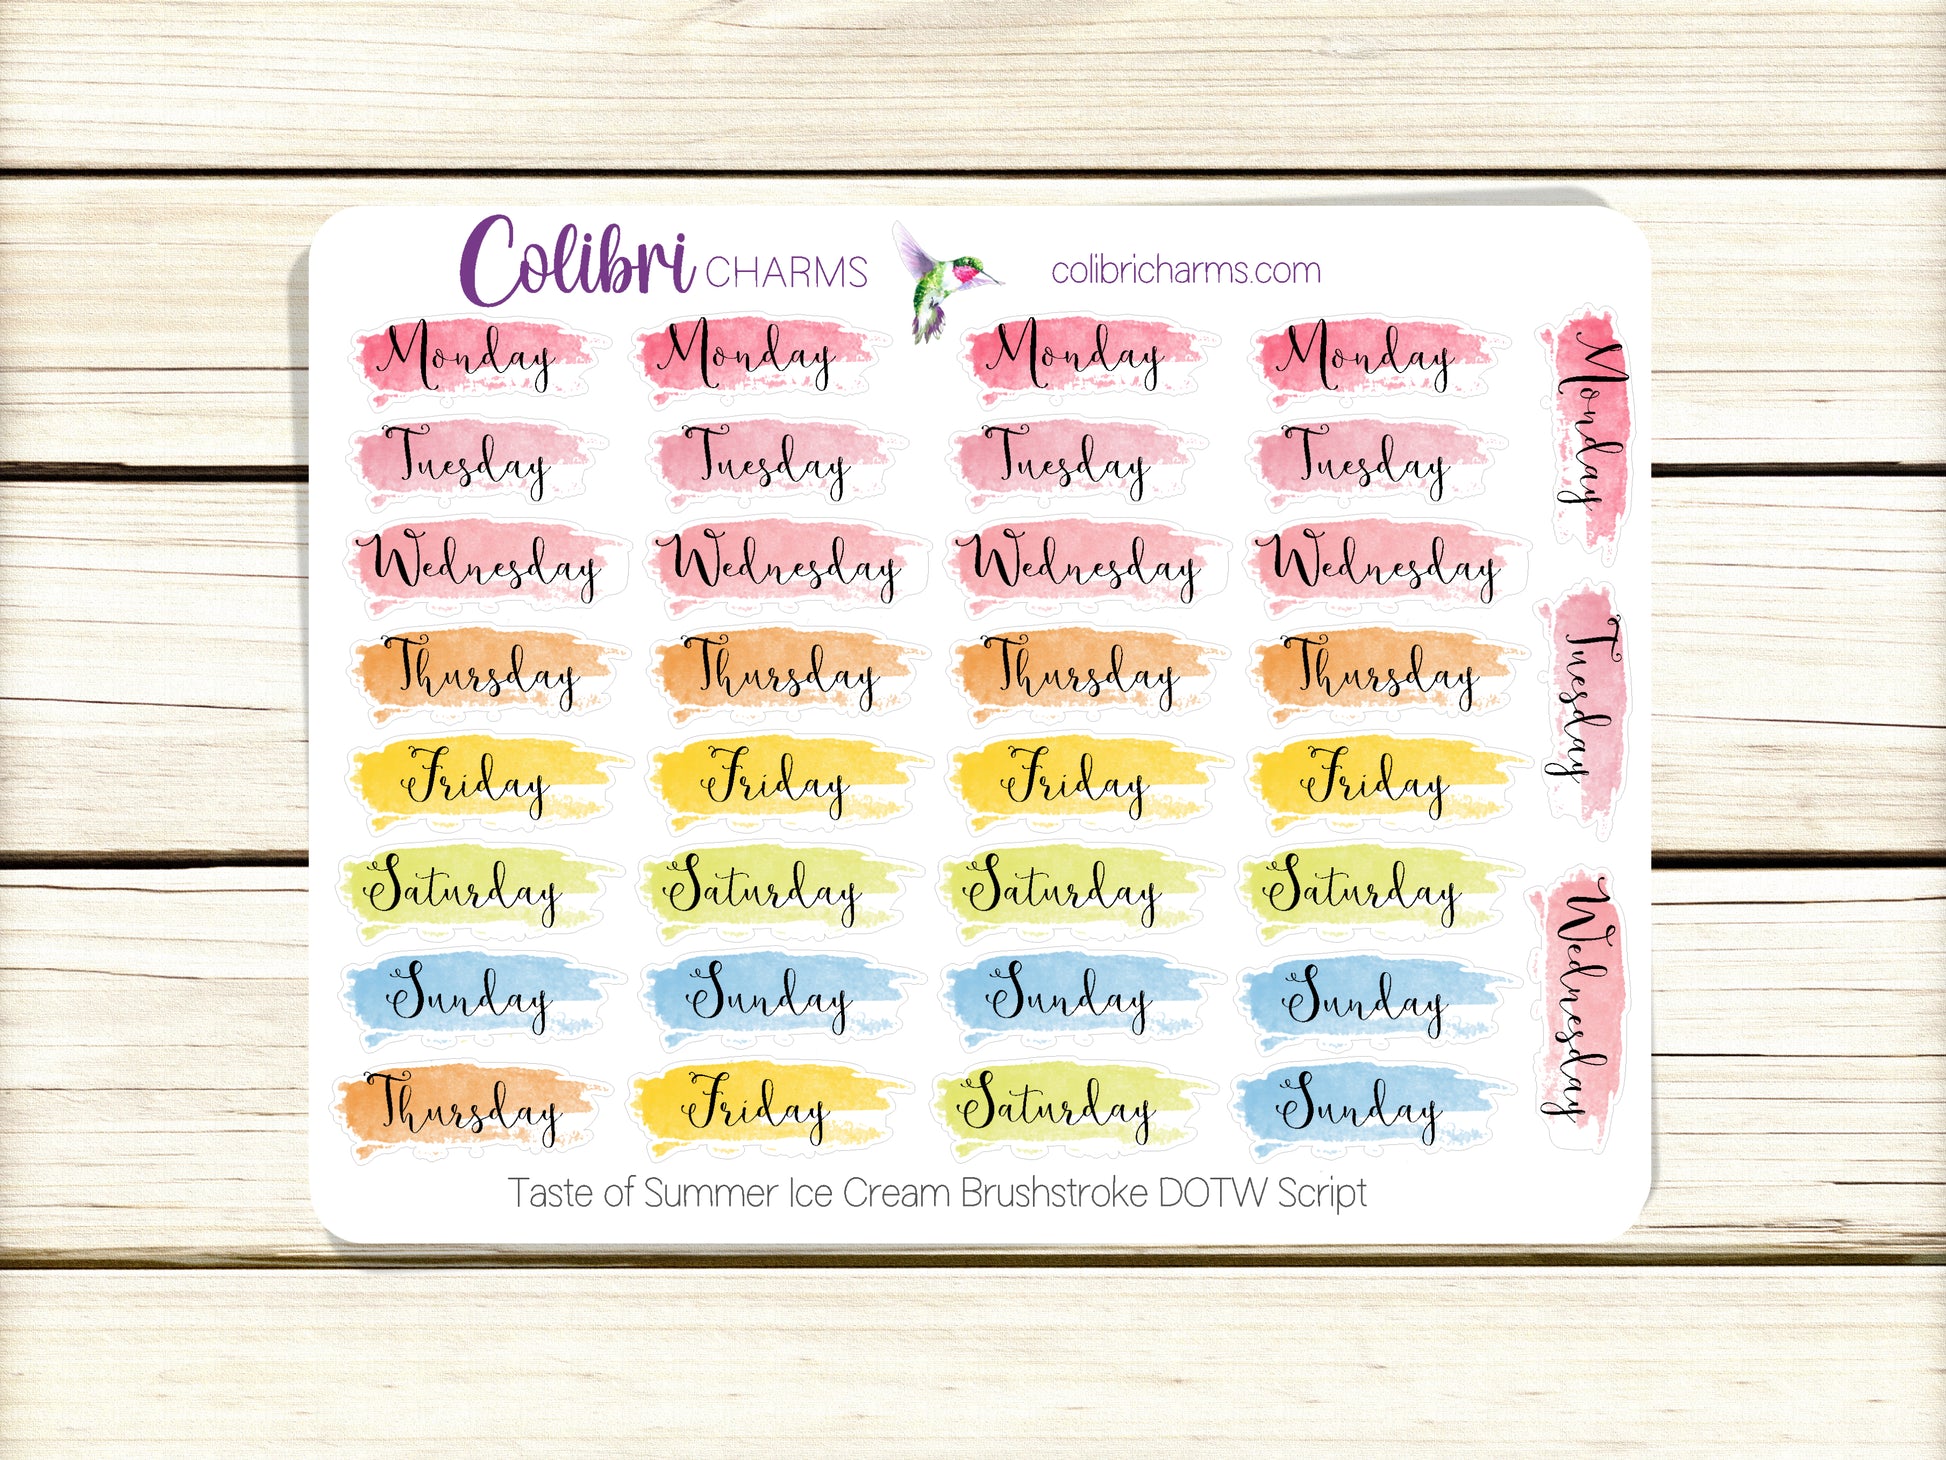 Colibri CHARMS
colibricharms.com
Monday Monday Monday Monday
Tuesday Tuesday Tuesday Tuesday
Wednesday Wednesday Wednesday Wednesday
Thursday Thursday Thursday Thursday
Friday Friday Friday Friday
Saturday Saturday Saturday Saturday
Sunday Sunday Sunday Sunday
Thursday Friday Saturday Sunday
Monday
Tuesday
Wednesday
Taste of Summer Ice Cream Brushstroke DOTW Script